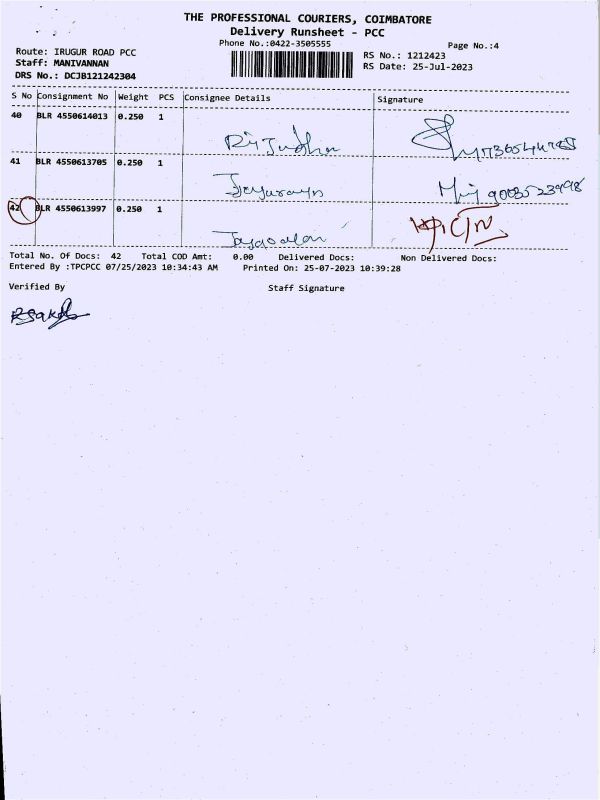 THE PROFESSIONAL COURIERS, COIMBATORE
Delivery Runsheet - PCC
Phone No.:0422-3505555
Page No.:4
Route: IRUGUR ROAD PCC
RS No.: 1212423
Staff: MANIVANNAN
RS Date: 25-Jul-2023
DRS No.: DCJB121242304
S No Consignment No Weight PCS Consignee Details Signature
40 BLR 4550614013 0.250 1
41 BLR 4550613705 0.250 1
42 BLR 4550613997 0.250 1
Total No. Of Docs: 42 Total COD Amt: 0.00 Delivered Docs: Non Delivered Docs:
Entered By :TPCPCC 07/25/2023 10:34:43 AM Printed On: 25-07-2023 10:39:28
Verified By Staff Signature